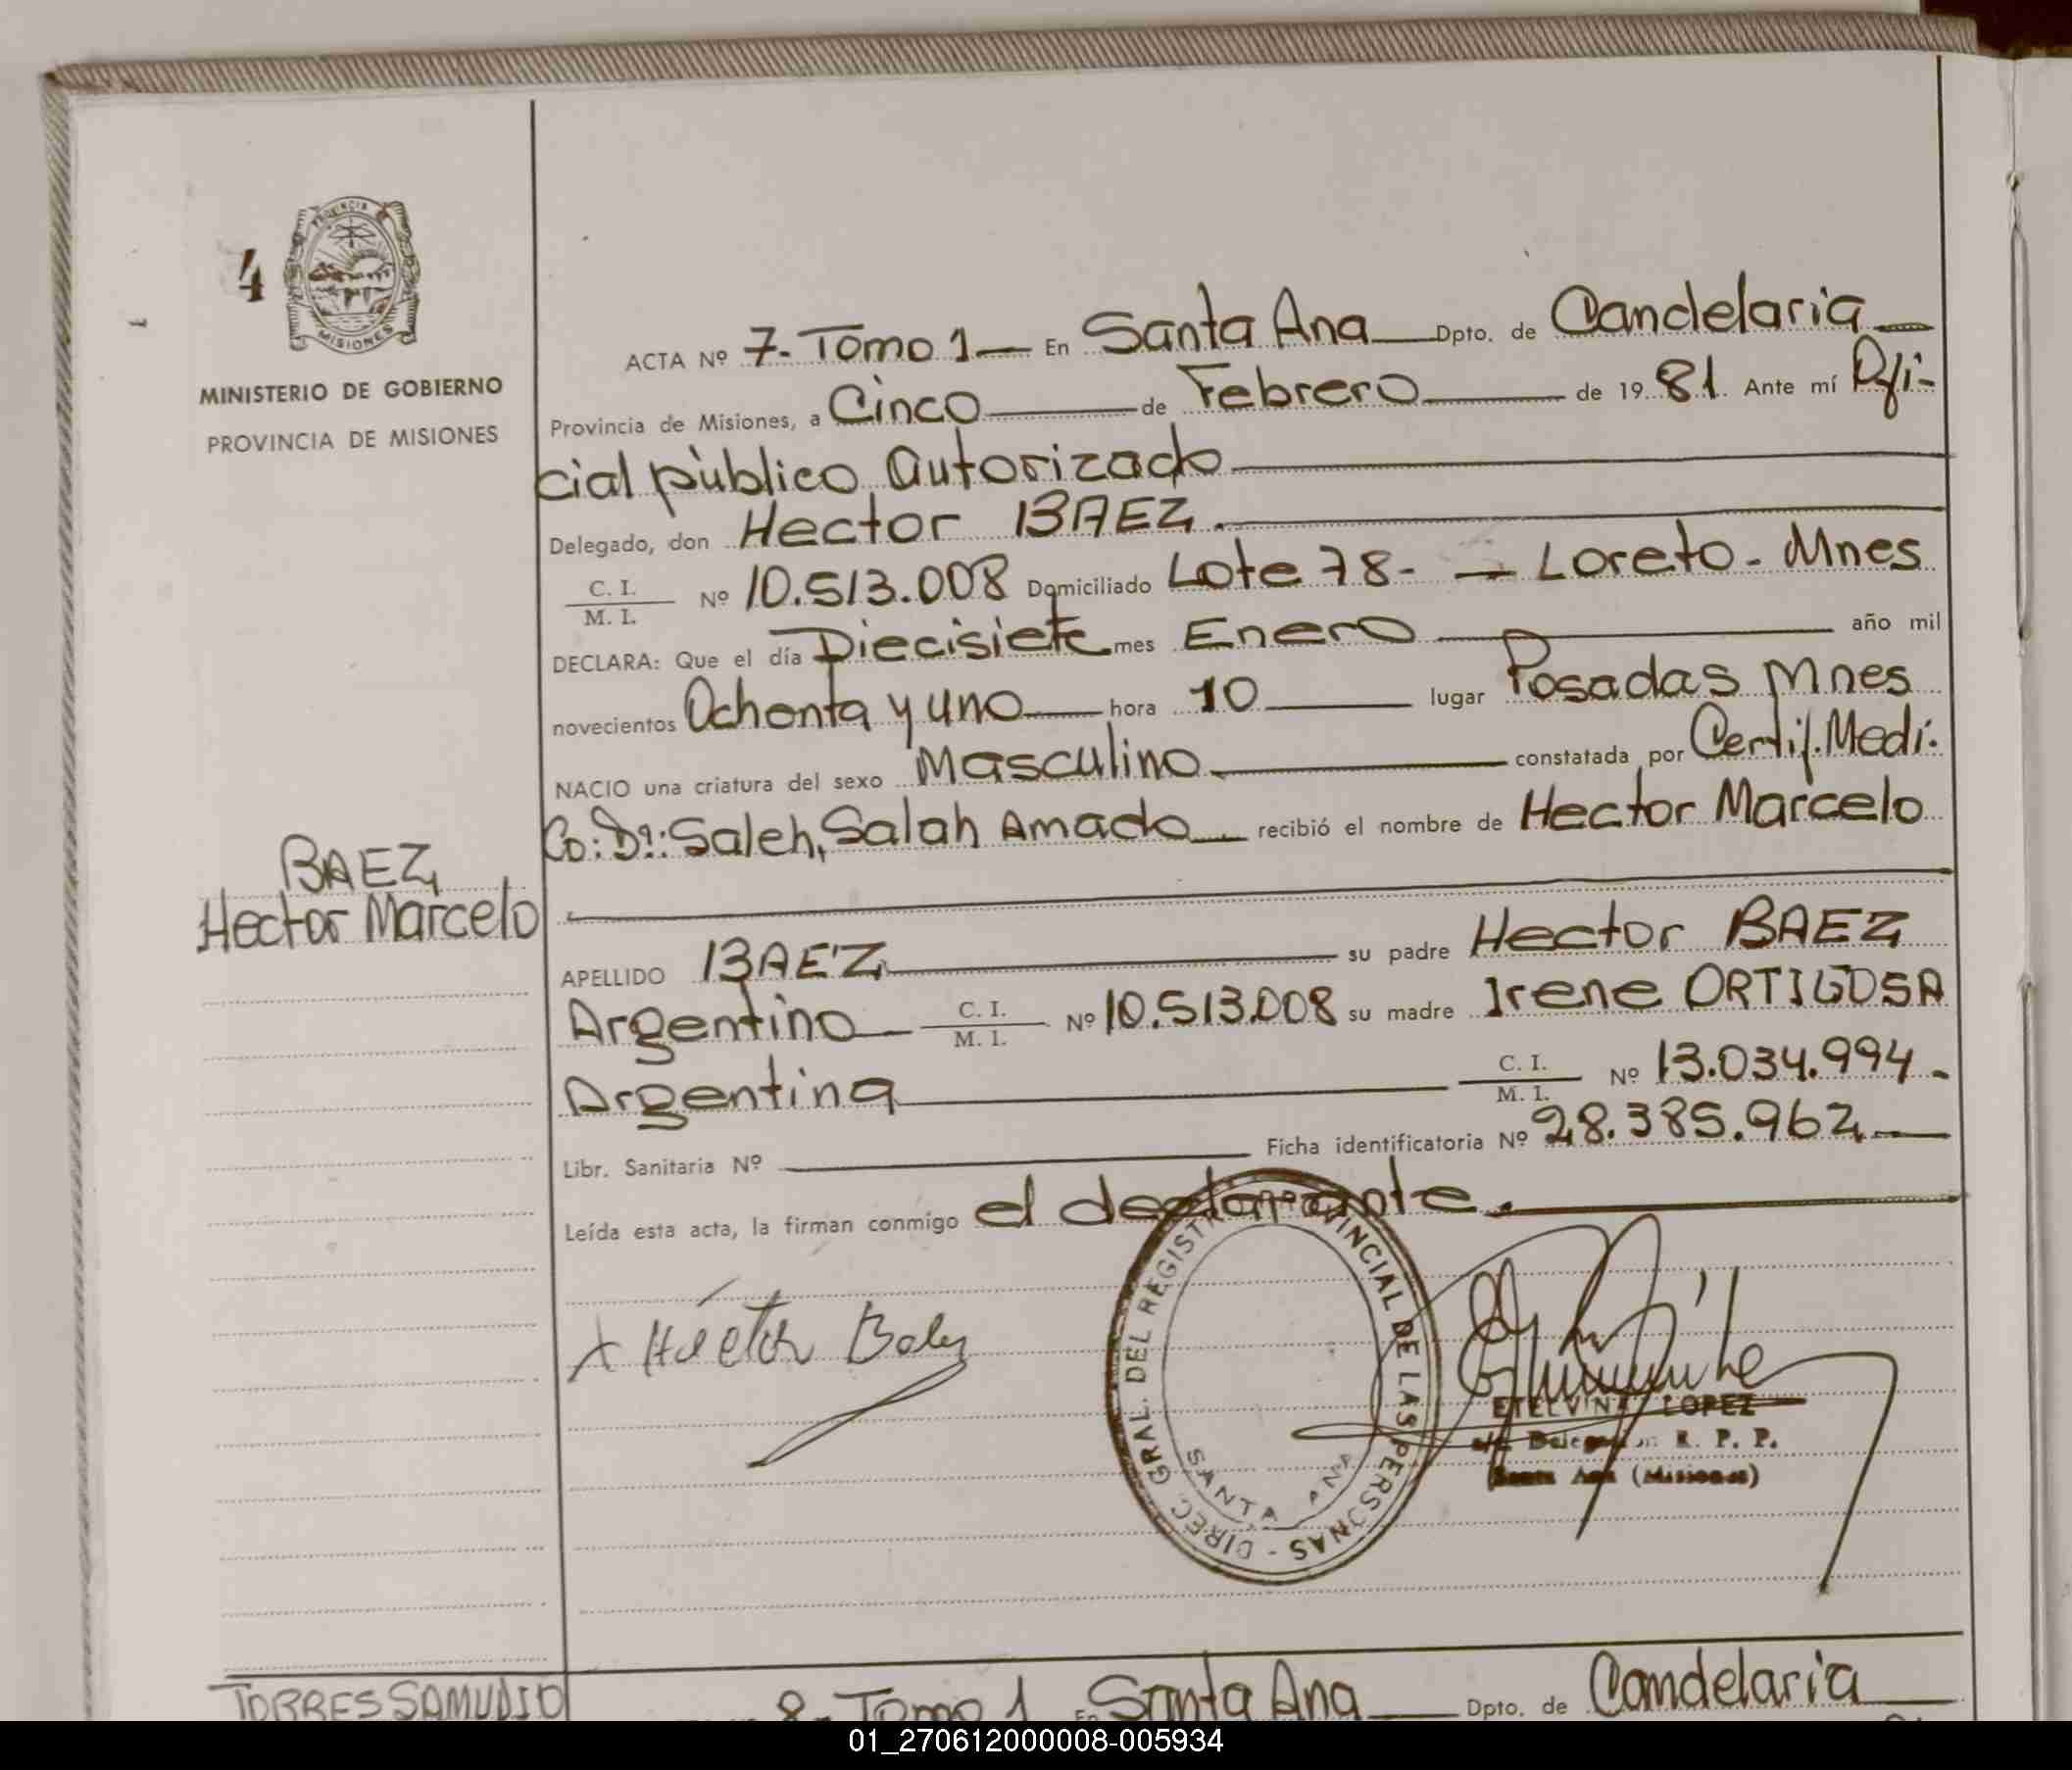 4
PROVINCIA
MISIONES
MINISTERIO DE GOBIERNO
PROVINCIA DE MISIONES
ACTA Nº 7- Tomo 1 — En Santa Ana — Dpto. de Candelaria —
Provincia de Misiones, a Cinco — de Febrero — de 1981. Ante mí Ofi-
cial pùblico Autorizado —
Delegado, don Hector BAEZ. —
C. I.
M. I. Nº 10.513.008 Domiciliado Lote 78- — Loreto - Mnes
DECLARA: Que el día Diecisiete mes Enero — año mil
novecientos Ochenta y uno — hora 10 — lugar Posadas Mnes
NACIO una criatura del sexo Masculino — constatada por Certif. Medi-
Co: Dº: Saleh, Salah Amado — recibió el nombre de Hector Marcelo
BAEZ
Hector Marcelo
APELLIDO BAEZ — su padre Hector BAEZ
Argentino — C. I.
M. I. Nº 10.513.008 su madre Irene ORTIGOSA
Argentina — C. I.
M. I. Nº 13.034.994 -
Libr. Sanitaria Nº — Ficha identificatoria Nº 28.385.962 —
Leída esta acta, la firman conmigo el declarante. —
X Héctor Baez
DIREC. GRAL. DEL REGISTRO PROVINCIAL DE LAS PERSONAS -
SANTA ANA
ETELVINA LOPEZ
a/c Delegación R. P. P.
Santa Ana (Misiones)
TORRES SAMUDIO
8- Tomo 1 En Santa Ana — Dpto. de Candelaria —
01_270612000008-005934